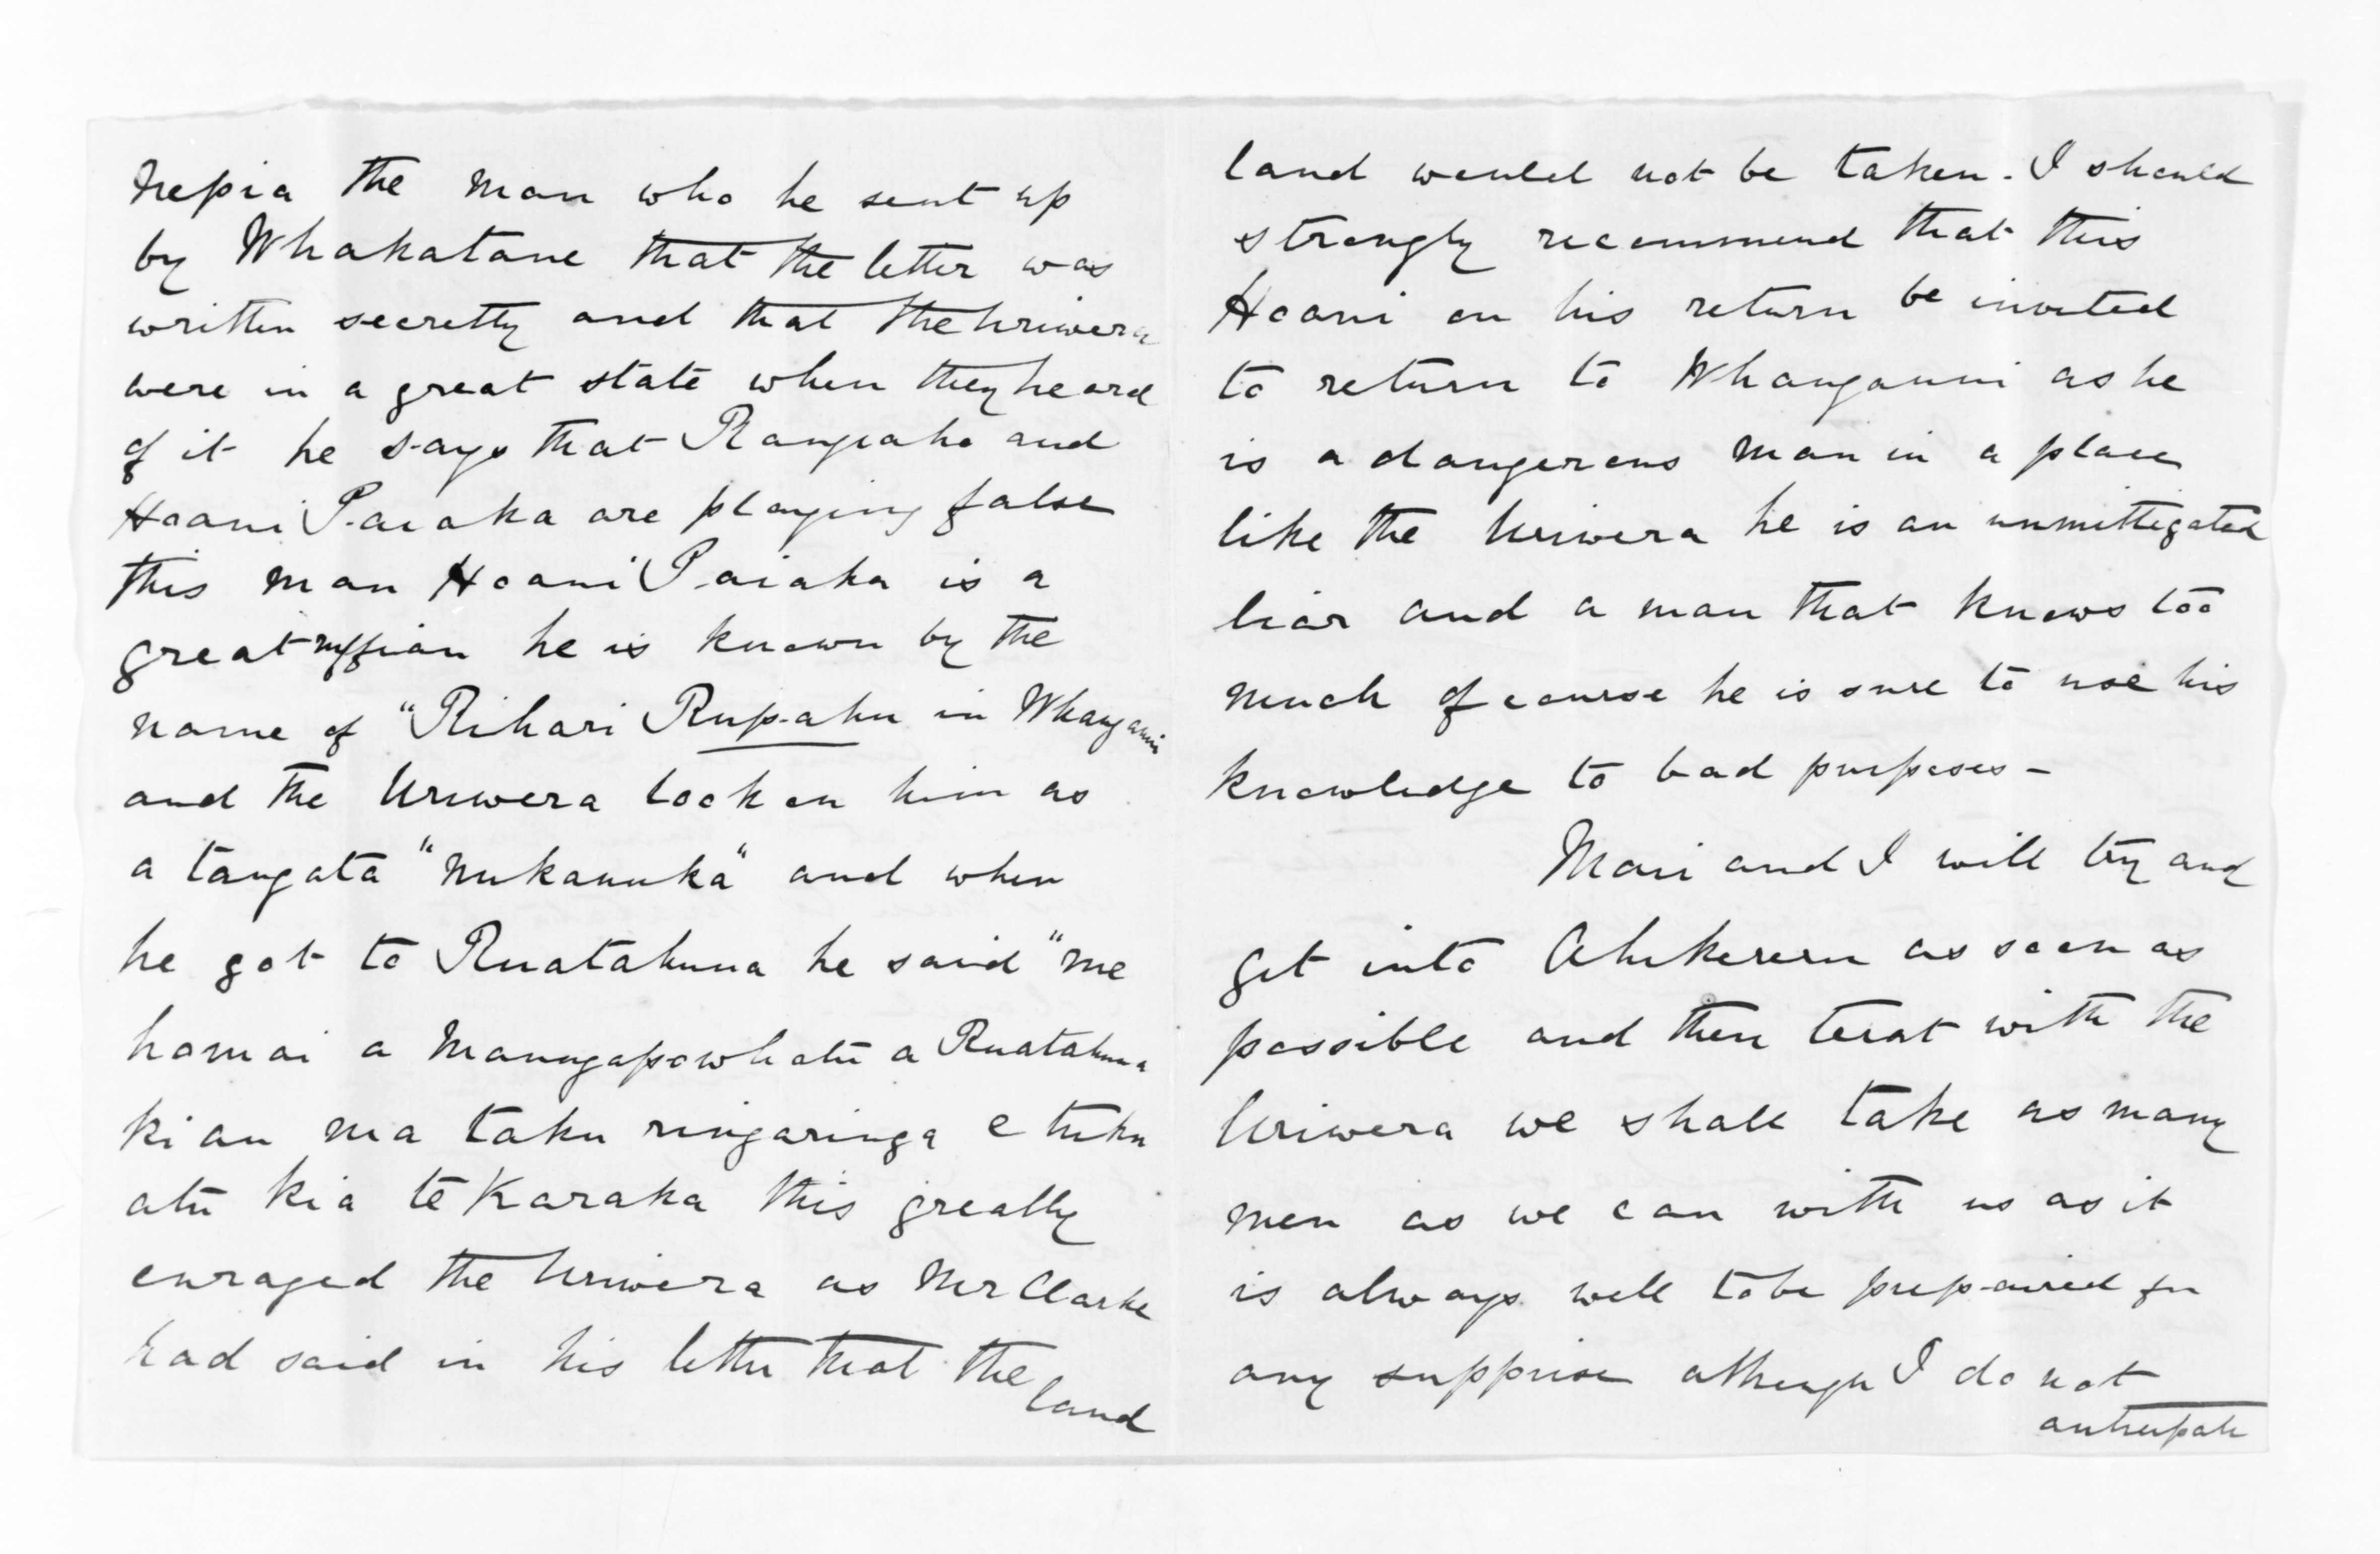 Nepia the man who he sent up
by Whakatane that the letter was
written secretly and that the Uriwera
were in a great state when they heard
of it he says that Rangiaho and
Hoani Paiaka are playing false
this man Hoani Paiaka is a
great ruffian he is known by the
name of "Rihari Rupahu in Whanganui
and the Uriwera look on him as
a tangata "nukanuka" and when
he got to Ruatahuna he said "me
homai a Maungapowhatu a Ruatahuna
ki au ma taku ringaringa e tuku
atu kia te Karaka this greatly
enraged the Uriwera as Mr Clarke
had said in his letter that the
land
land would not be taken. I should
strongly recommend that this
Hoani on his return be invited
to return to Whanganui as he
is a dangerous man in a place
like the Uriwera he is an unmittigated
liar and a man that knows too
much of course he is sure to use his
knowledge to bad purposes -
Mair and I will try and
get into Ahikereru as soon as
possible and then treat with the
Uriwera we shall take as many
men as we can with us as it
is always well to be prepaired for
any supprise although I do not
anticipate